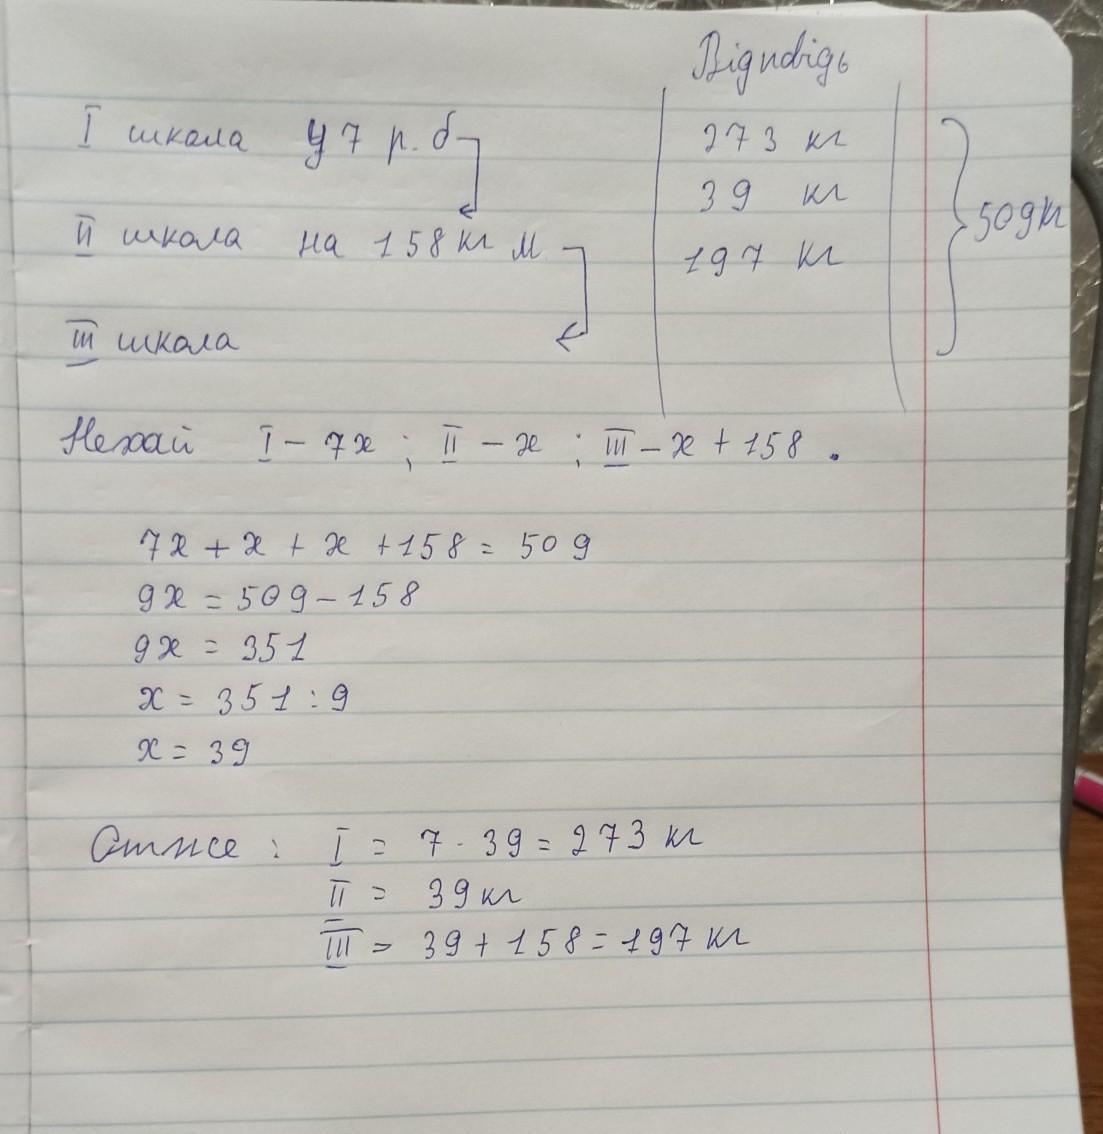 Відповідь
I школа у 7 р. б 273 кг
39 кг
509 кг
II школа на 158 кг м 197 кг
III школа
Нехай I - 7x ; II - x ; III - x + 158 .
7x + x + x + 158 = 509
9x = 509 - 158
9x = 351
x = 351 : 9
x = 39
Отже : I = 7 · 39 = 273 кг
II = 39 кг
III = 39 + 158 = 197 кг